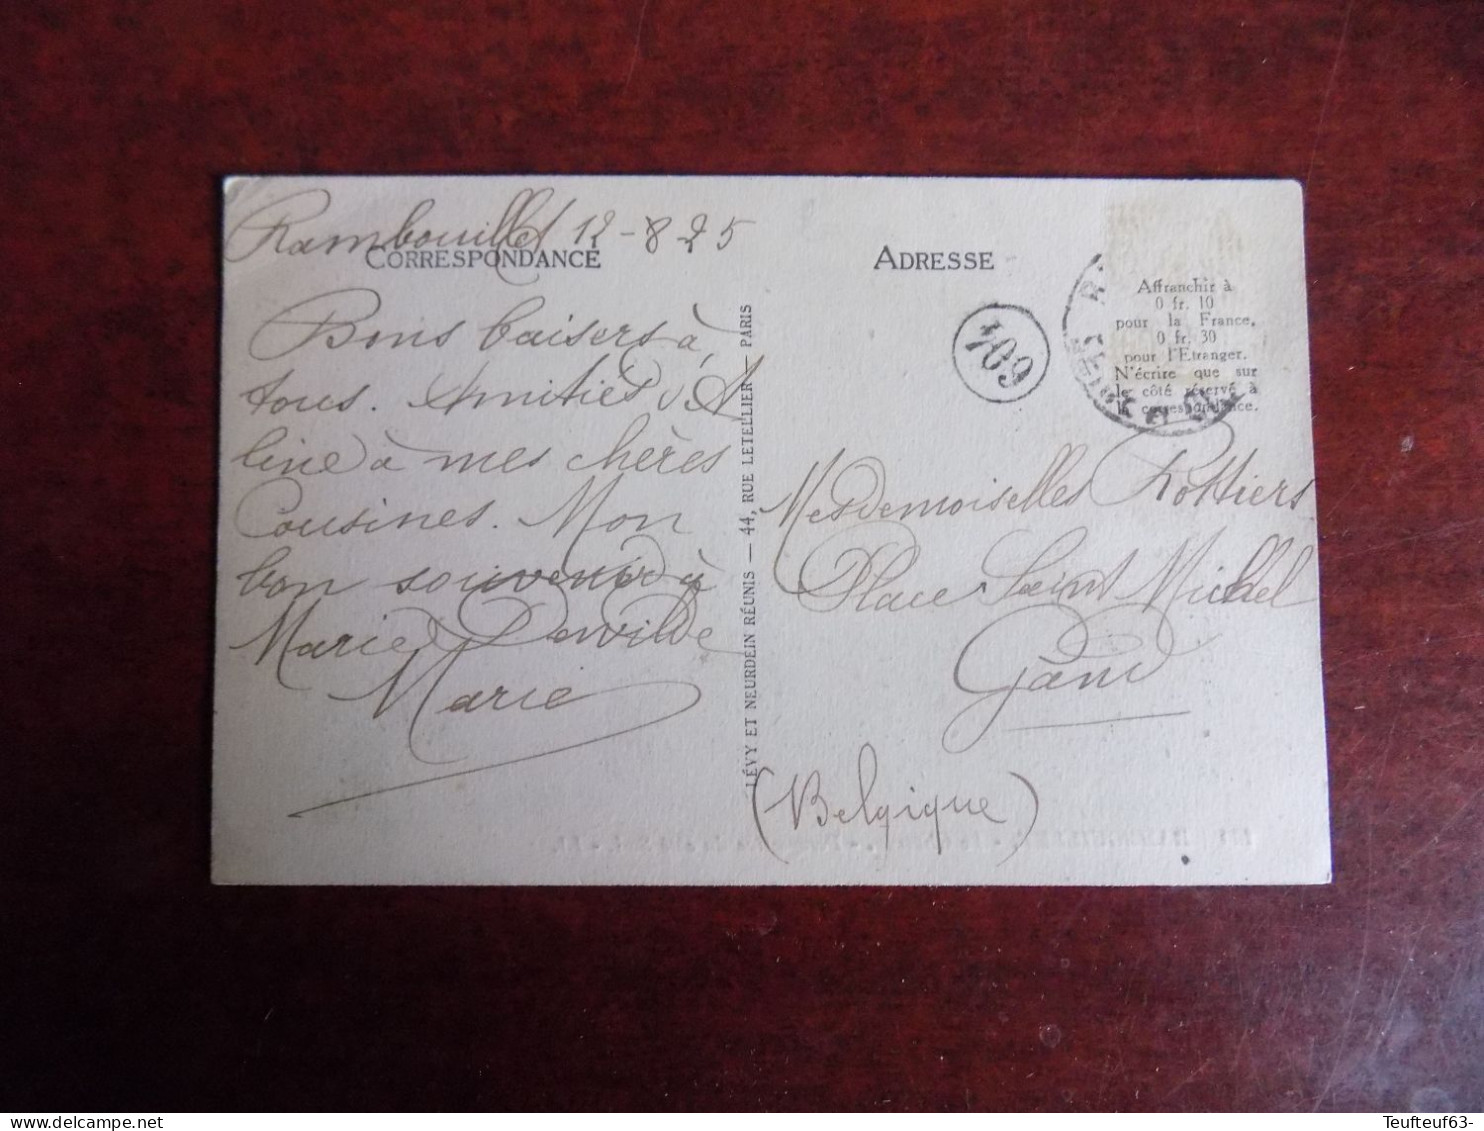 Rambouillet 12-8-25
CORRESPONDANCE
Bons baisers à
tous. Amitiés d'A
line à mes chères
Cousines. Mon
bon souvenir à
Marie Dewilde
Marie
LÉVY ET NEURDEIN RÉUNIS — 44, RUE LETELLIER — PARIS
ADRESSE
Affranchir à
0 fr. 10
pour la France,
0 fr. 30
pour l'Etranger.
N'écrire que sur
le côté réservé à
la correspondance.
409
Mesdemoiselles Rottiers
Place Saint Michel
Gand
(Belgique)
Teufteuf63-